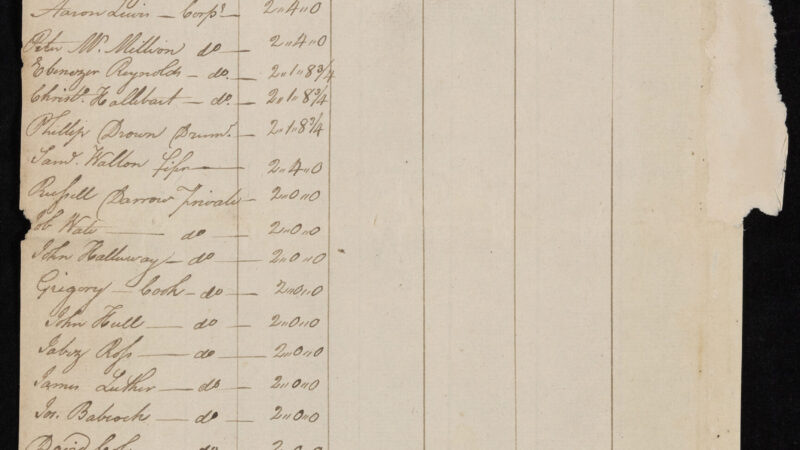 Aaron Lewis – Corpl. 2„4„0
Peter McMillion do — 2„4„0
Ebenezer Reynolds – do. — 2„1„8 3/4
Christr. Hallibart — do. — 2„1„8 3/4
Phillip Brown Drumr. — 2„1„8 3/4
Saml. Walton fifer — 2„4„0
Russell Darrow Private – 2„0„0
Job — do — 2„0„0
John Halluway – do — 2„0„0
Gregory — Cook – do — 2„0„0
John Hull — do — 2„0„0
Jabez Ross — do — 2„0„0
James Luther — do — 2„0„0
Jos. Babcock — do — 2„0„0
David do 2„0„0